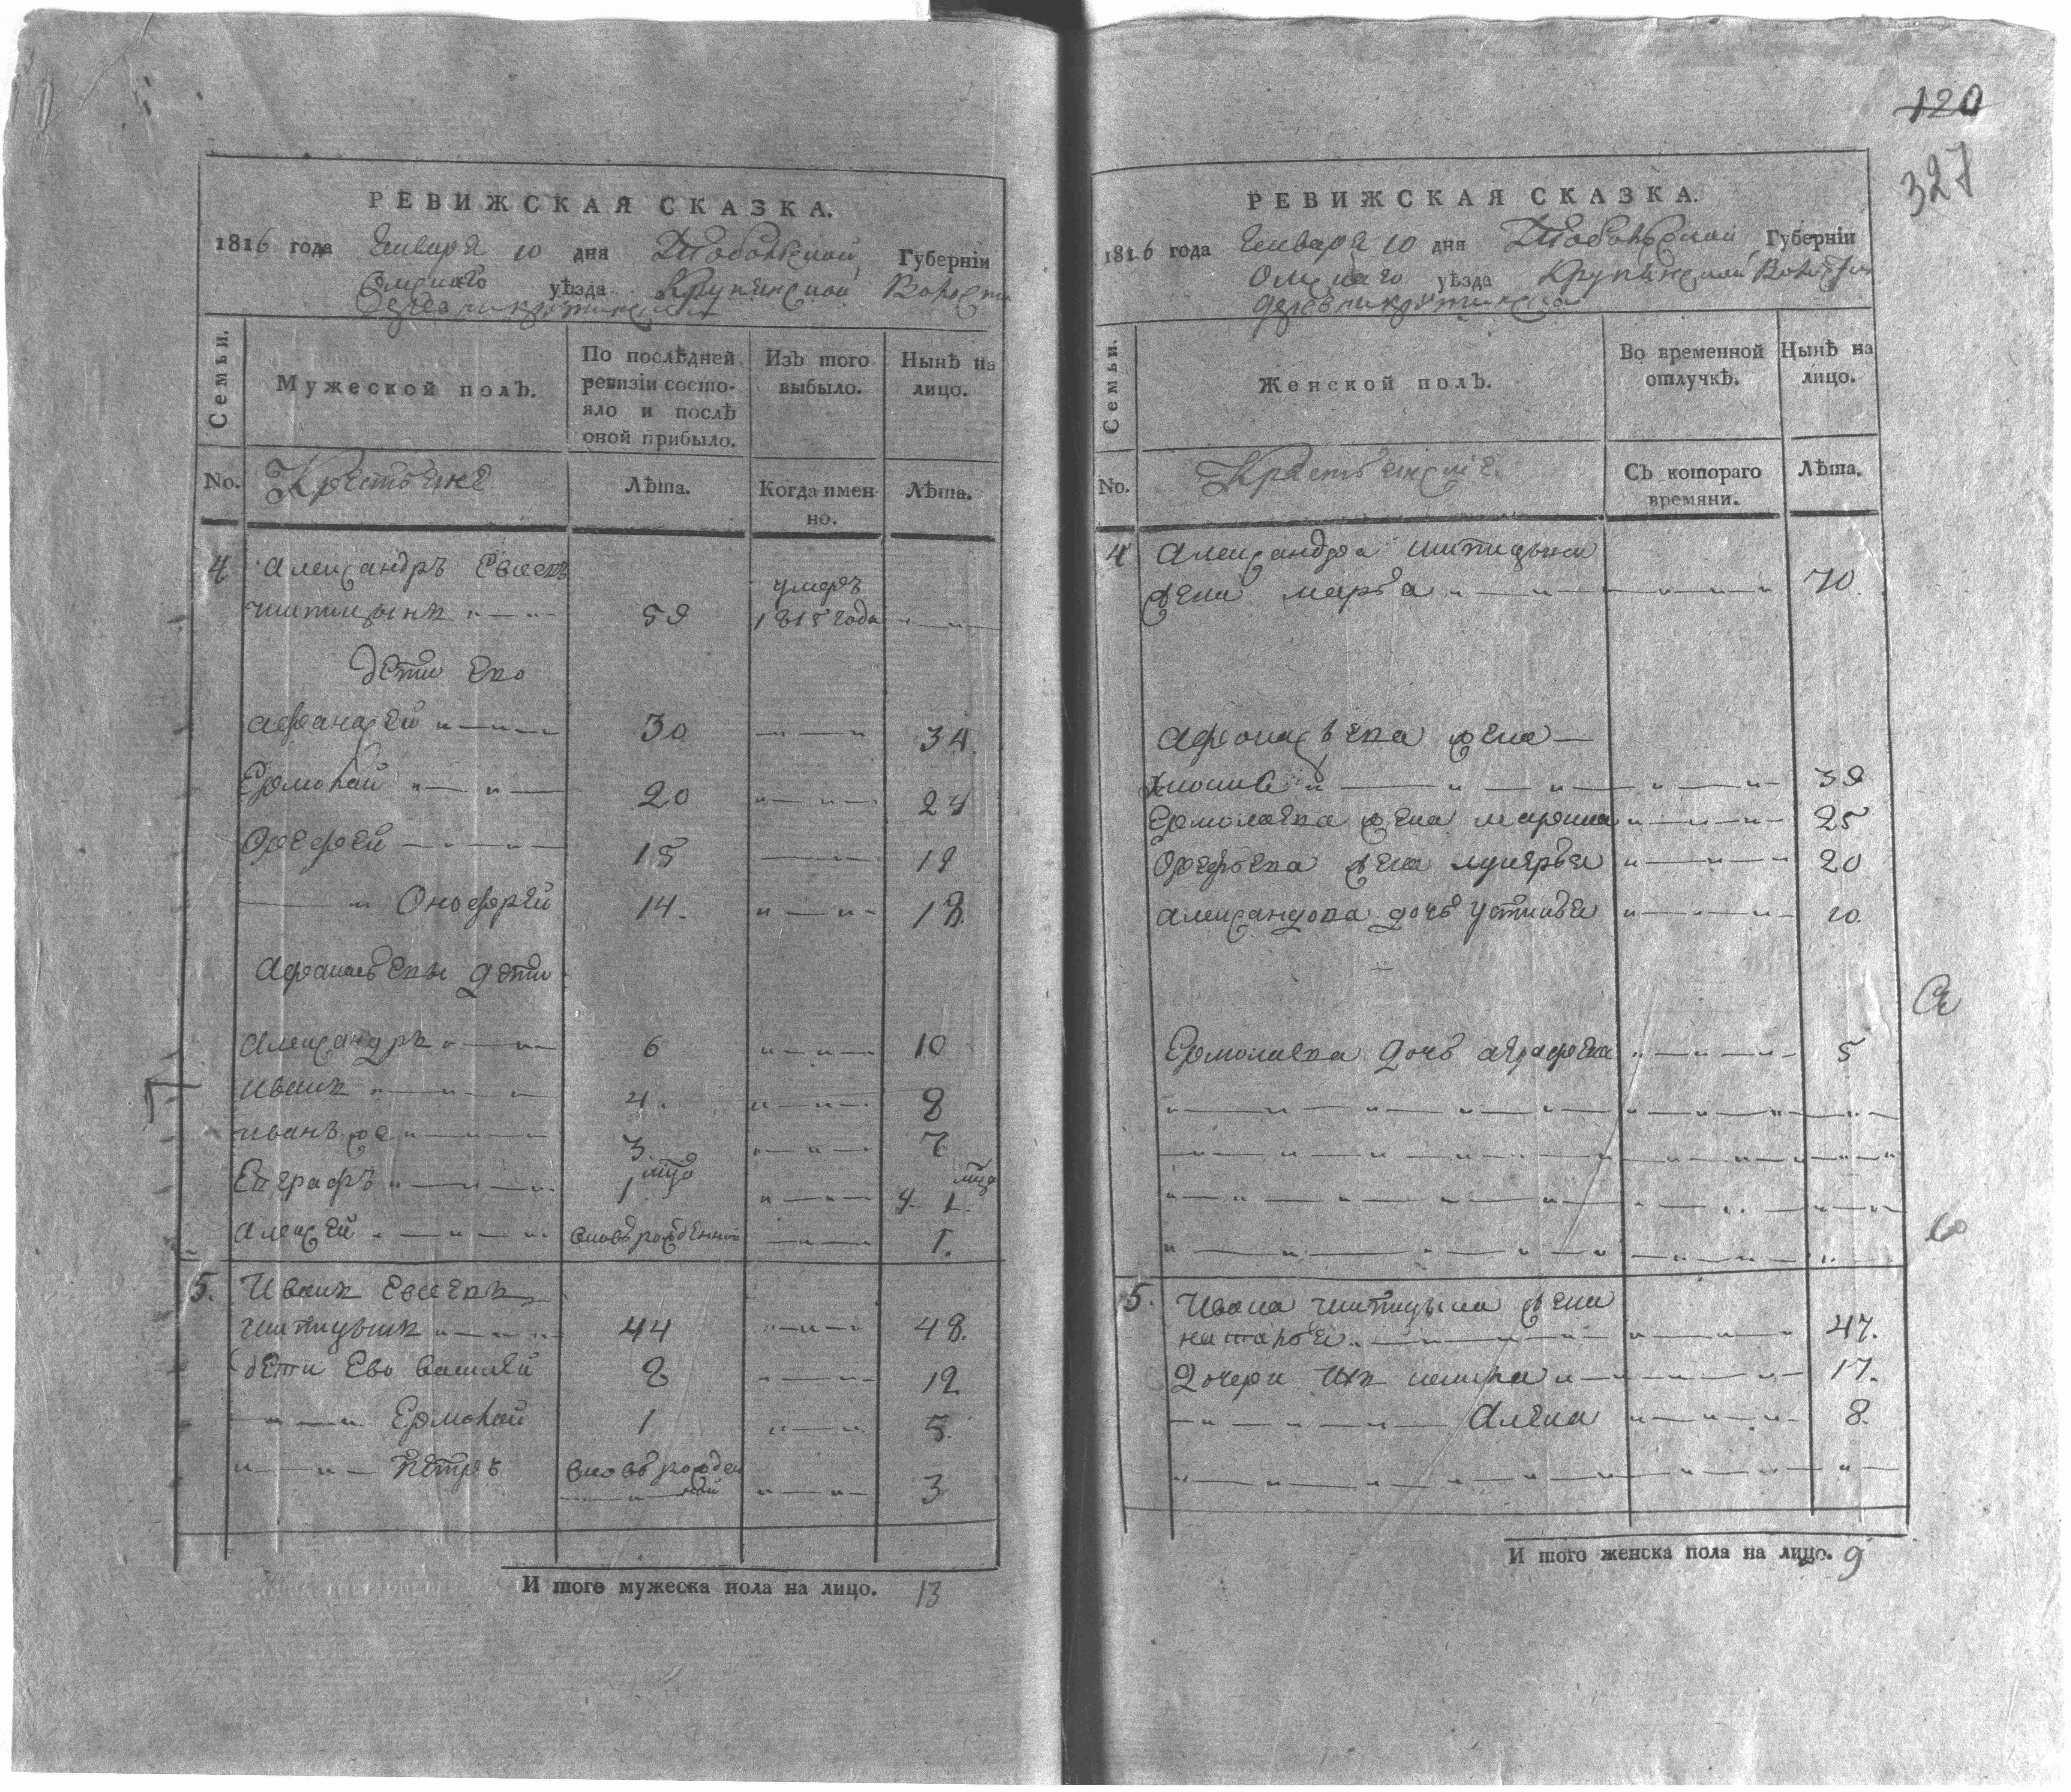 РЕВИЖСКАЯ СКАЗКА.
1816 года Генваря 10 дня Тобольской Губернiи
Омскаго уѣзда Крупинской Волости
Семьи.
Мужеской полъ.
По послѣдней ревизiи состо-
яло и послѣ
оной прибыло.
Изъ того
выбыло.
Нынѣ на
лицо.
No.
Крестьяне
Лѣта.
Когда имен-
но.
Лѣта.
4 Александръ Евсеевъ
умеръ
шипицынъ 59 1815 года
дети Ево
Афанасей 30 34.
Ермолай 20 24
Ерефей 15 19
Онофрей 14. 18.
Афанасьевы дети
Александръ 6 10
Иванъ 4. 8
иванъ же 3. 7
Евграфъ 1 4. 1.
Алексей вновьрожденной 1.
5. Иванъ Евсеевъ
шипицынъ 44 48.
дети Ево василей 8 12
Ермолай 1 5.
Петръ вновь рожден
ной 3
И того мужеска пола на лицо. 13
120
327
РЕВИЖСКАЯ СКАЗКА.
1816 года Генваря 10 дня Тобольской Губернiи
Омскаго уѣзда Крупинской Волости
Семьи.
Женской полъ.
Во временной
отлучкѣ.
Нынѣ на
лицо.
No.
Крестьянскiе
Съ котораго
времяни.
Лѣта.
4 Александра шипицына
жена марфа 70.
Афонасьева жена
39
Ермолаева жена марина 25
жена лукерья 20
Александрова дочь устинья 10.
Ермолаева дочь аграфена 5
5. Ивана шипицына жена
наталья 47.
Дочери Ихъ 17.
Алена 8.
И того женска пола на лицо. 9